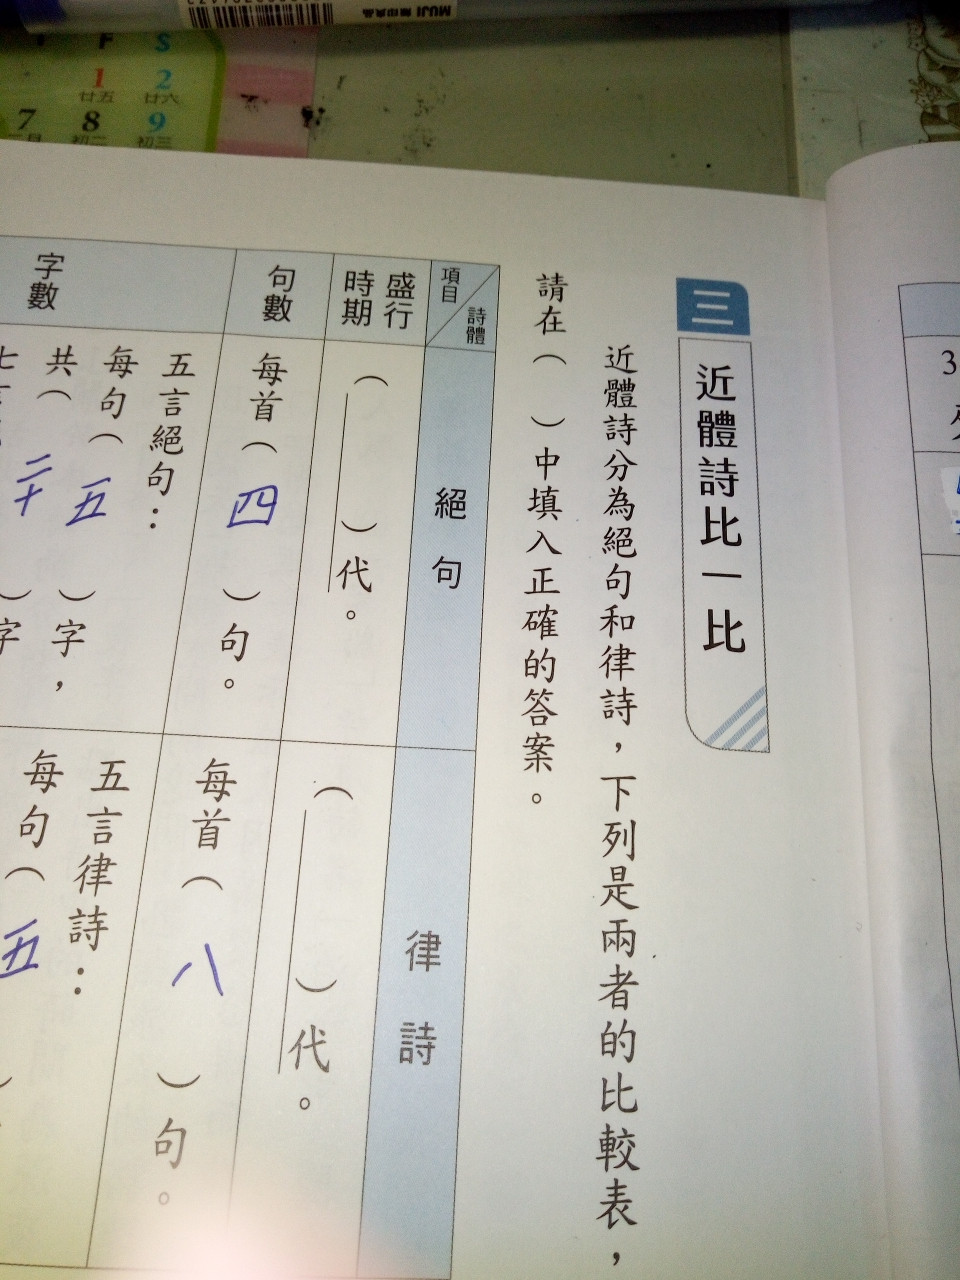 MUJI 無印良品
F S
1 2
廿五 廿六
7 8 9
初二 初三
三
近體詩比一比
近體詩分為絕句和律詩，下列是兩者的比較表，
請在（ ）中填入正確的答案。
項目 詩體
絕句
律詩
盛行
時期
（ ）代。
（ ）代。
句數
每首（四）句。
每首（八）句。
字數
五言絕句：
每句（五）字，
共（二十）字
五言律詩：
每句（五
3